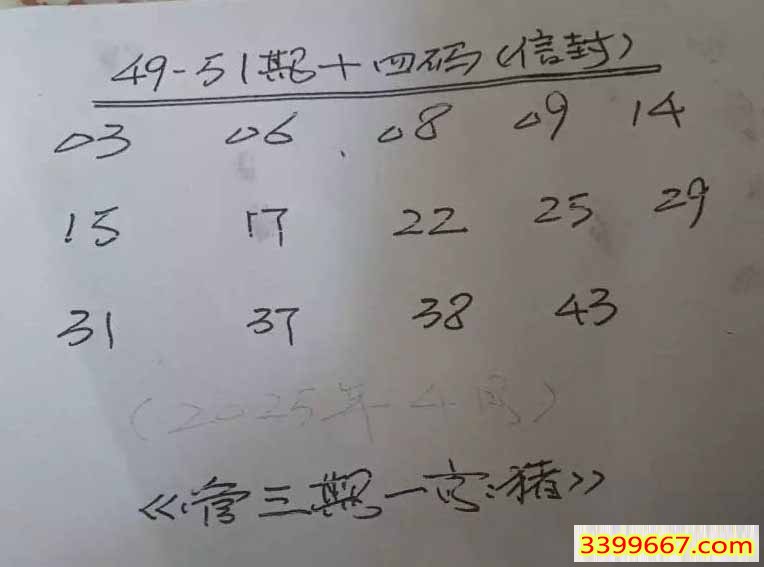 49-51期十四码(信封)
03 06 08 09 14
15 17 22 25 29
31 37 38 43
(2025年-4月)
《管三期一字:猪》
3399667.com